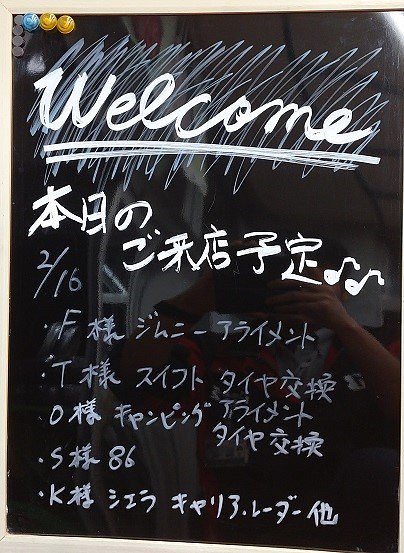 Welcome
本日の
ご来店予定♪♪
2/16
・F様 ジムニー アライメント
・T様 スイフト タイヤ交換
O様 キャンピング アライメント
タイヤ交換
・S様 86
・K様 シエラ キャリア.ルーダー 他